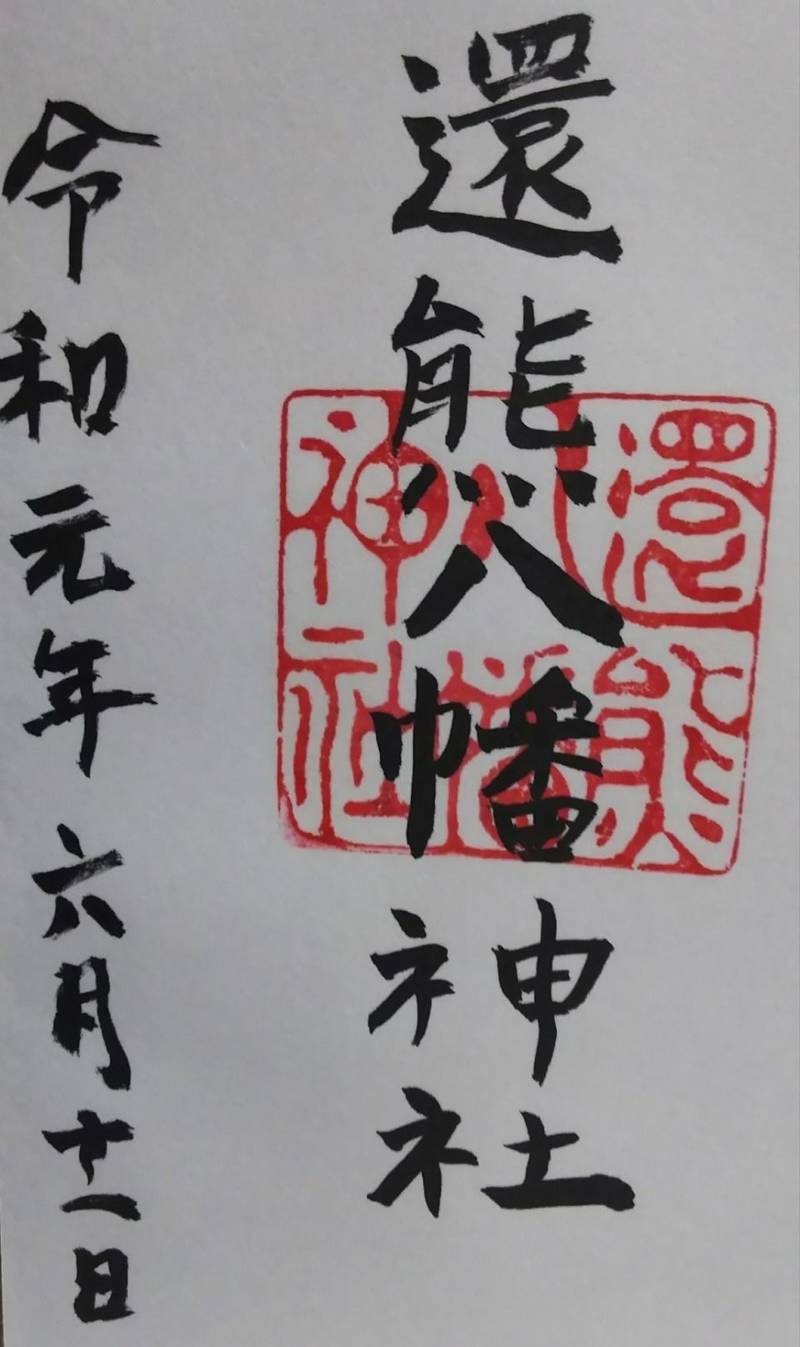 還熊八幡神社
令和元年六月十一日
還熊
八幡
神社